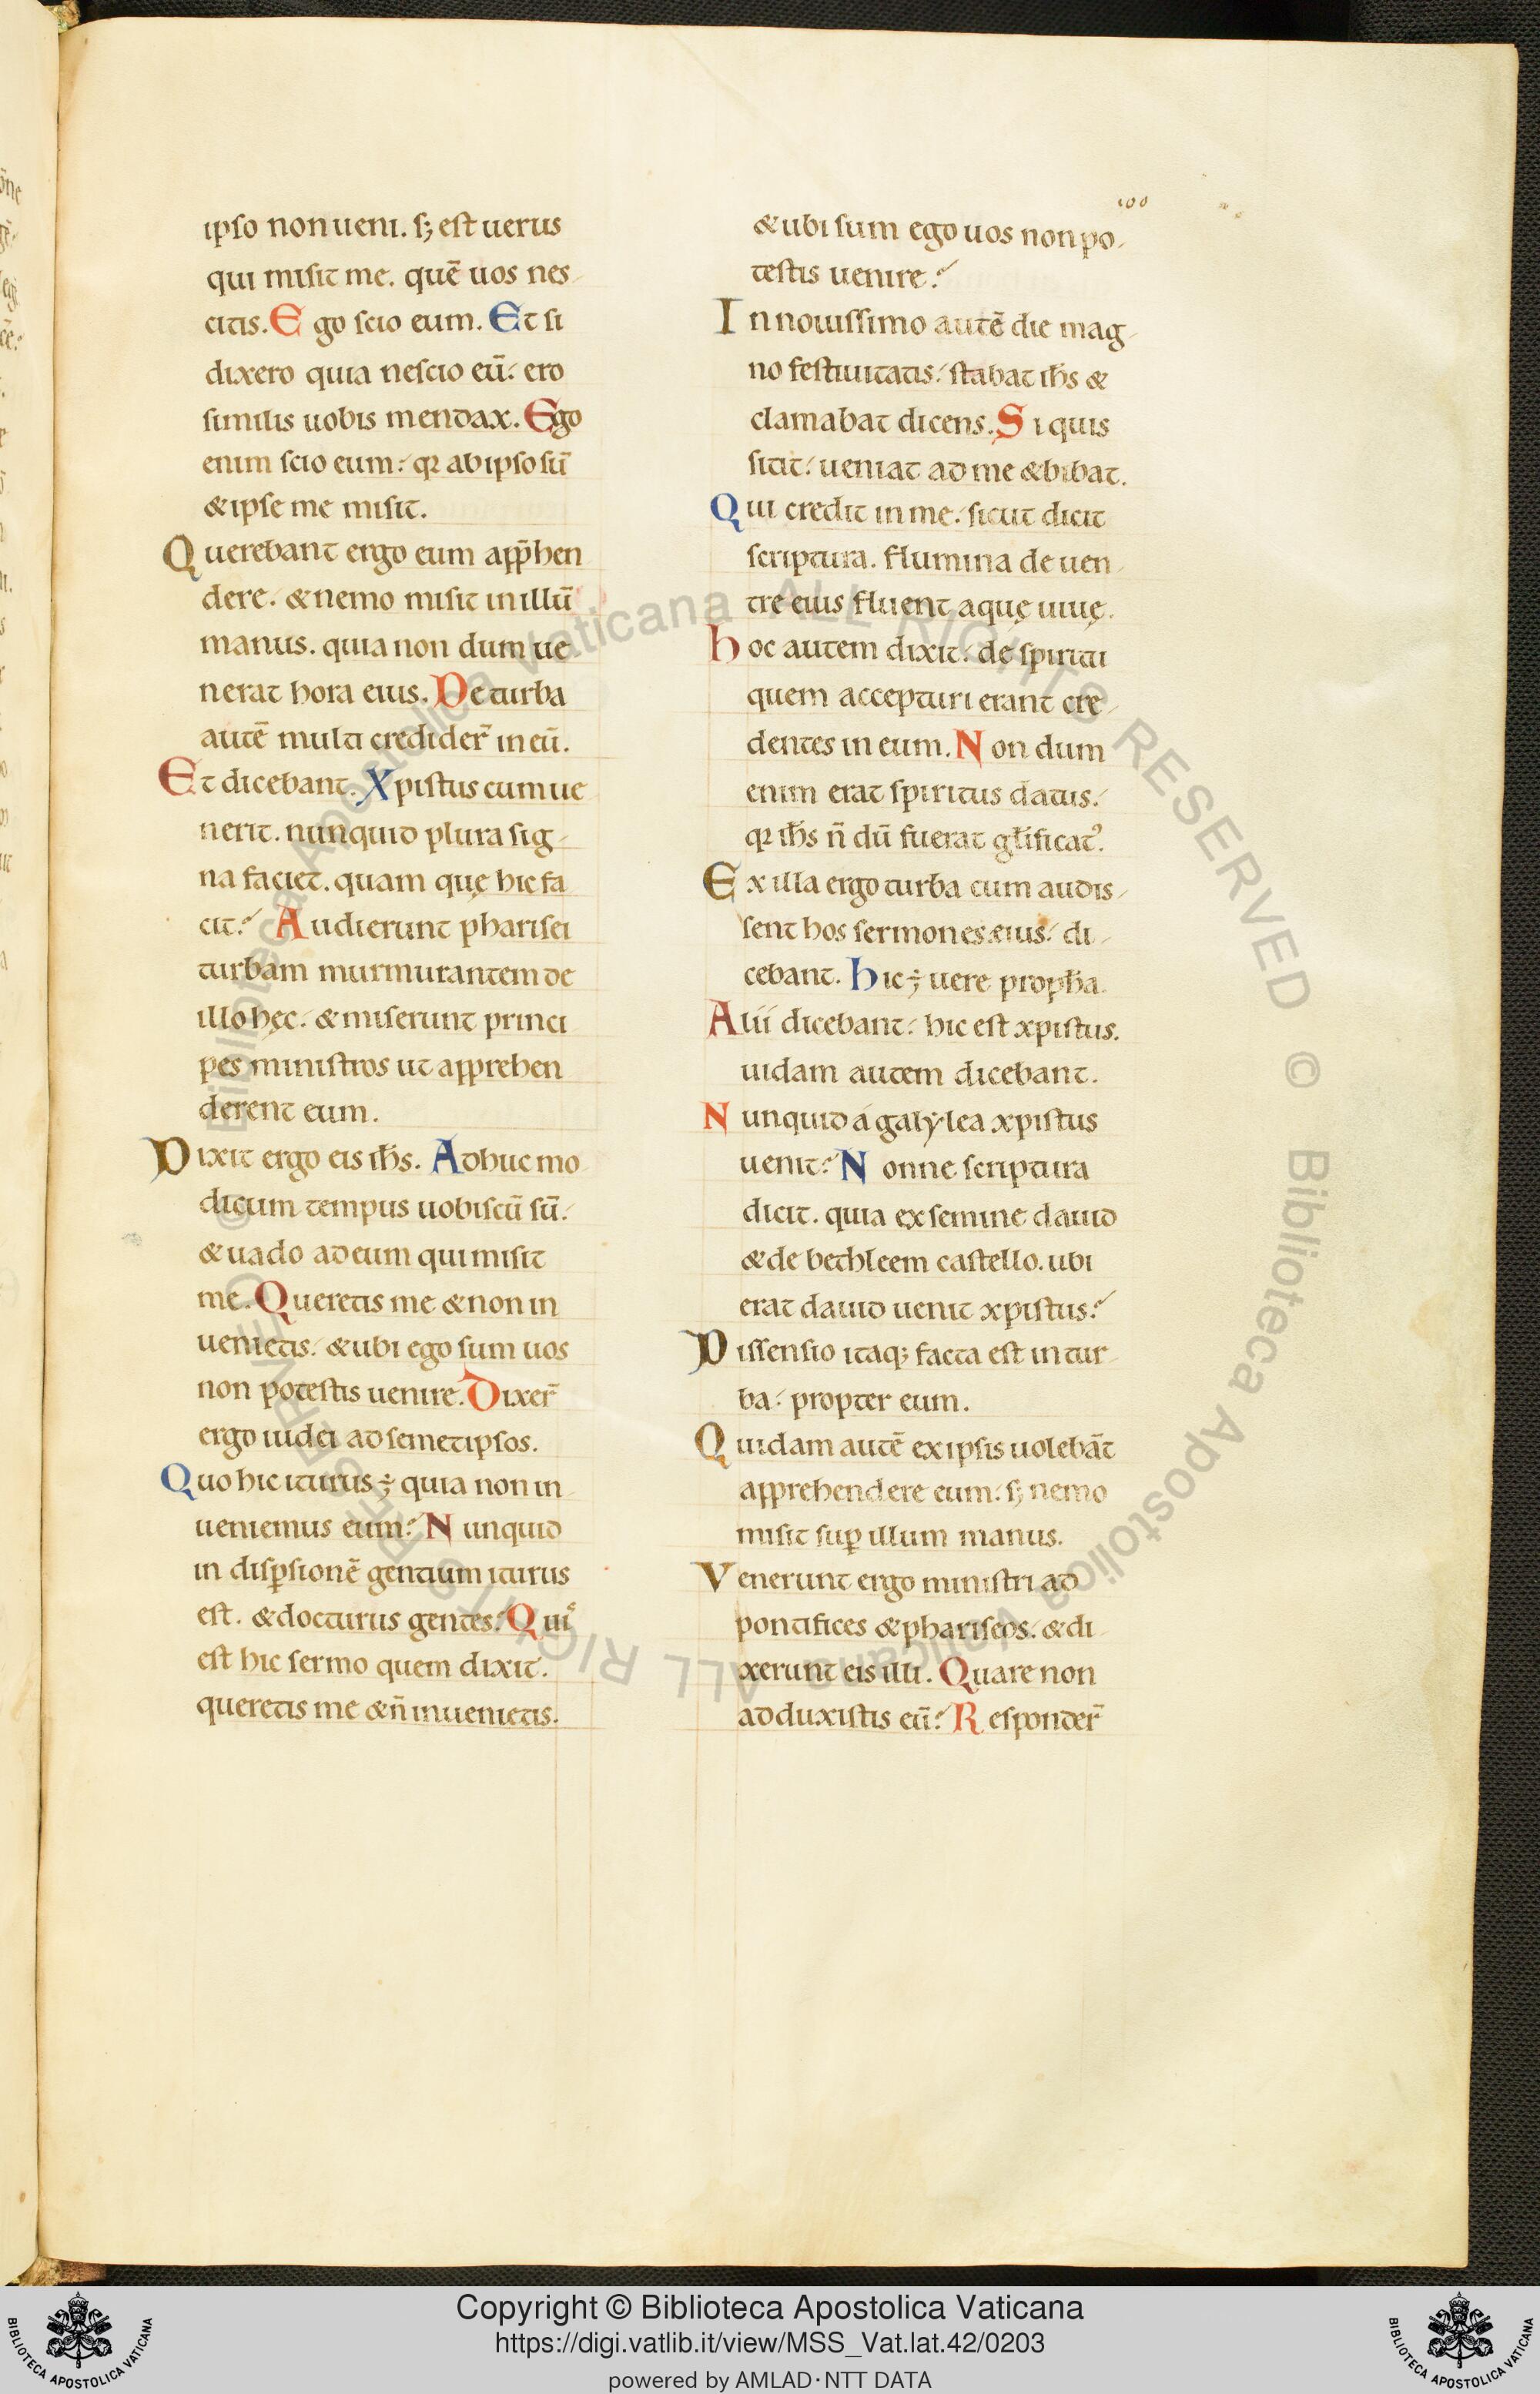 100
ipso non ueni. s; est uerus
qui misit me. quē uos nes
citis. Ego scio eum. Et si
dixero quia nescio eū. ero
similis uobis mendax. Ego
enim scio eum. qꝛ ab ipso sū
& ipse me misit.
Querebant ergo eum app̄hen
dere. & nemo misit in illū
manus. quia non dum ue
nerat hora eius. De turba
autē multi credider̄ in eū.
Et dicebant. Xpistus cum ue
nerit. nunquid plura sig
na faciet. quam quę hic fa
cit? Audierunt pharisei
turbam murmurantem de
illo hęc. & miserunt princi
pes ministros ut apprehen
derent eum.
Dixit ergo eis ih̄s. Adhuc mo
dicum tempus uobiscū sū.
& uado ad eum qui misit
me. Queretis me & non in
uenietis. & ubi ego sum uos
non potestis uenire. Dixer̄
ergo iudei ad semetipsos.
Quo hic iturus ÷ quia non in
ueniemus eum? Nunquid
in disꝑsionē gentium iturus
est. & docturus gentes? Qui
est hic sermo quem dixit.
queretis me & n̄ inuenietis.
& ubi sum ego uos non po
testis uenire?
In nouissimo autē die mag
no festiuitatis. stabat ih̄s &
clamabat dicens. Si quis
sitit. ueniat ad me & bibat.
Qui credit in me. sicut dicit
scriptura. flumina de uen
tre eius fluent aquę uiuę.
hoc autem dixit. de spiritu
quem accepturi erant cre
dentes in eum. Non dum
enim erat spiritus datus.
qꝛ ih̄s n̄ dū fuerat gl̄ificatꝰ.
Ex illa ergo turba cum audis
sent hos sermones eius. di
cebant. hic ÷ uere proph̄a.
Alii dicebant. hic est xpistus.
uidam autem dicebant.
Nunquid á galylea xpistus
uenit? Nonne scriptura
dicit. quia ex semine dauid
& de bethleem castello. ubi
erat dauid uenit xpistus?
Dissensio itaq; facta est in tur
ba. propter eum.
Quidam autē ex ipsis uolebāt
apprehendere eum. s; nemo
misit suꝑ illum manus.
Venerunt ergo ministri ad
pontifices & phariseos. & di
xerunt eis illi. Quare non
adduxistis eū? Responder̄
© Biblioteca Apostolica Vaticana ALL RIGHTS RESERVED © Biblioteca Apostolica Vaticana ALL RIGHTS RESERVED
BIBLIOTECA APOSTOLICA VATICANA
Copyright © Biblioteca Apostolica Vaticana
https://digi.vatlib.it/view/MSS_Vat.lat.42/0203
powered by AMLAD·NTT DATA
BIBLIOTECA APOSTOLICA VATICANA